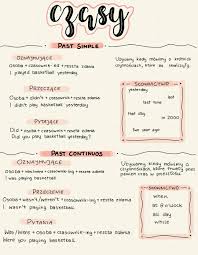 czasy
PAST SIMPLE
OZNAJMUJĄCE
Osoba + czasownik - ed + reszta zdania
I played basketball yesterday
PRZECZĄCE
Osoba + didn't + czasownik + reszta zdania
I didn't play basketball yesterday.
PYTAJĄCE
Did + osoba + czasownik + reszta zdania
Did you play basketball yesterday
Używamy kiedy mówimy o
czynnościach, które się
SŁOWNICTWO
yesterday
last time
last day
in 2000
two year ago
PAST CONTINUOS
OZNAJMUJĄCE
Osoba + was/were + czasownik-ing + reszta zdania
I was playing basketball.
PRZECZENIE
Osoba + wasn't/weren't + czasownik-ing + reszta zdania
I wasn't playing basketball.
PYTANIA
Was/were + osoba + czasownik-ing + reszta zdania
Were you playing basketball.
Używamy kiedy mówimy o
czynnościach, które
czas w przeszłości.
SŁOWNICTWO
when
at 8 o'clock
all day
while